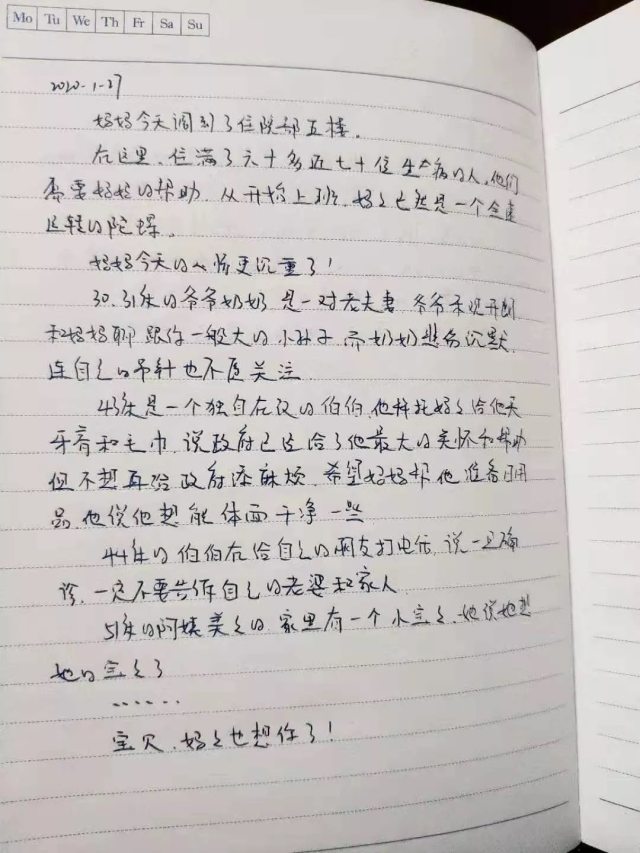 Mo Tu We Th Fr Sa Su
2020.1.27
妈妈今天调到了住院部五楼。
在这里,住满了六十多近七十位生病的人,他们
需要妈妈的帮助。从开始上班,妈妈已然是一个急速
运转的陀螺。
妈妈今天的心情更沉重了!
30.31床的爷爷奶奶是一对老夫妻 爷爷乐观开朗
和妈妈聊跟你一般大的小孙子,而奶奶悲伤沉默,
连自己的吊针也不愿关注
43床是一个独自在汉的伯伯,他拜托妈妈给他买
牙膏和毛巾,说政府已经给了他最大的关怀和帮助
但不想再给政府添麻烦,希望妈妈帮他准备日用
品,他说他想能体面干净一些
44床的伯伯在给自己的朋友打电话,说一旦确
诊,一定不要告诉自己的老婆和家人
51床的阿姨美美的,家里有一个小宝宝,她说她想
她的宝宝了
......
宝贝,妈妈也想你了!